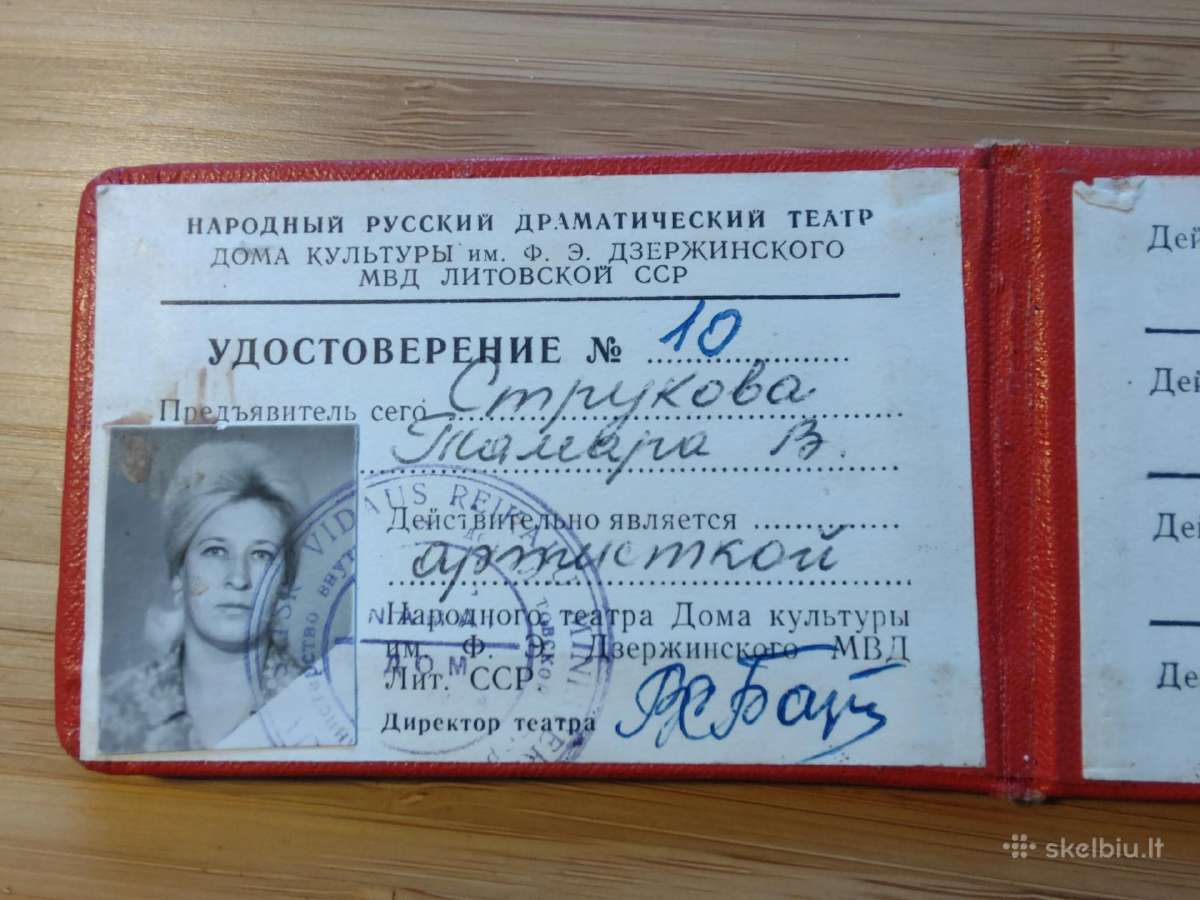 НАРОДНЫЙ РУССКИЙ ДРАМАТИЧЕСКИЙ ТЕАТР
ДОМА КУЛЬТУРЫ им. Ф. Э. ДЗЕРЖИНСКОГО
МВД ЛИТОВСКОЙ ССР
УДОСТОВЕРЕНИЕ № 10
Предъявитель сего Струкова
Тамара В.
Действительно является
артисткой
Народного театра Дома культуры
им. Ф. Э. Дзержинского МВД
Лит. ССР
Директор театра
VIDAUS REIKALŲ MINI
NAMAI
ДОМ
Дей
Дей
Дей
Де
skelbiu.lt